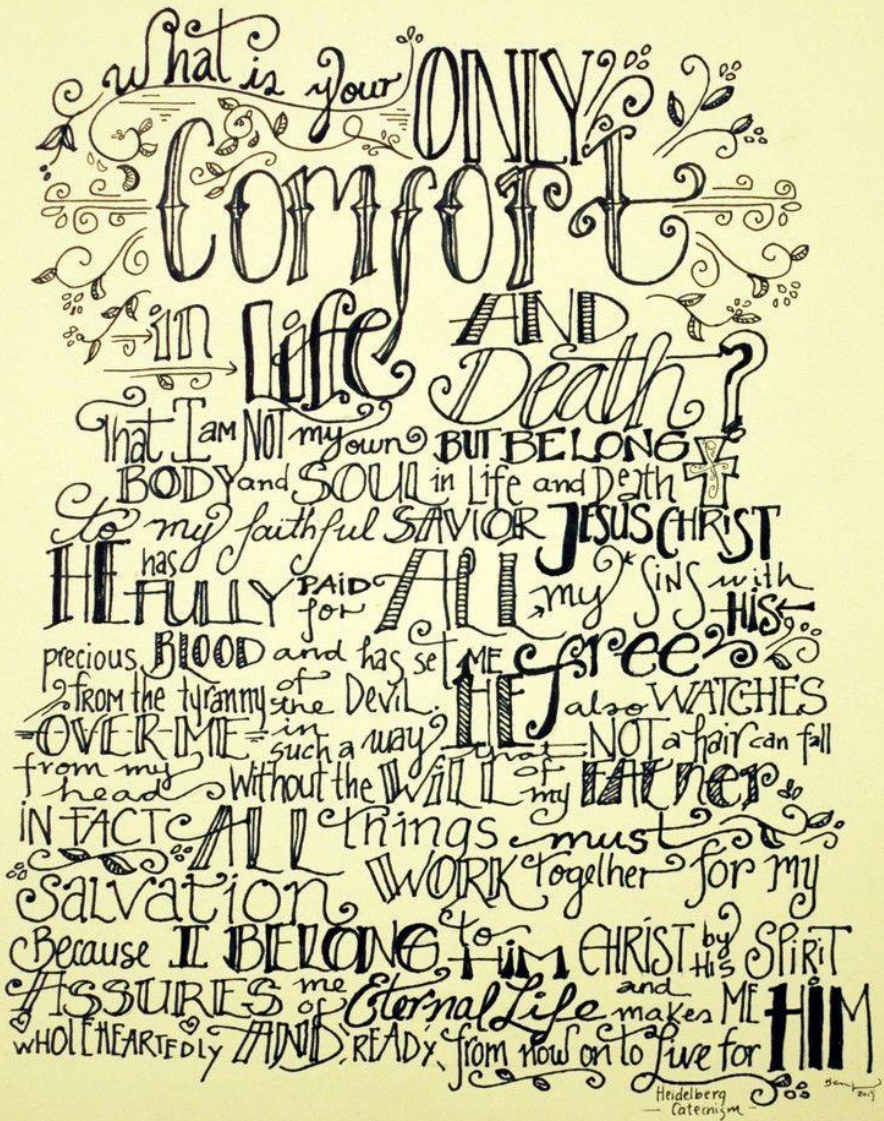 What is your ONLY
Comfort
in Life AND
Death?
That I am NOT my own BUT BELONG
BODY and SOUL in Life and Death
to my faithful SAVIOR JESUS CHRIST
HE has FULLY PAID for ALL my SINS with HIS
precious BLOOD and has set ME free
FROM the tyranny of the DEVIL. HE also WATCHES
OVER ME in such a way that NOT a hair can fall
from my head without the WILL of my FATHER
IN FACT ALL things must
WORK together for my
Salvation
Because I BELONG to HIM CHRIST by HIS SPIRIT
ASSURES me of Eternal Life and makes ME
WHOLEHEARTEDLY AND READY from now on to Live for HIM
Heidelberg
- Catecnism -
2015